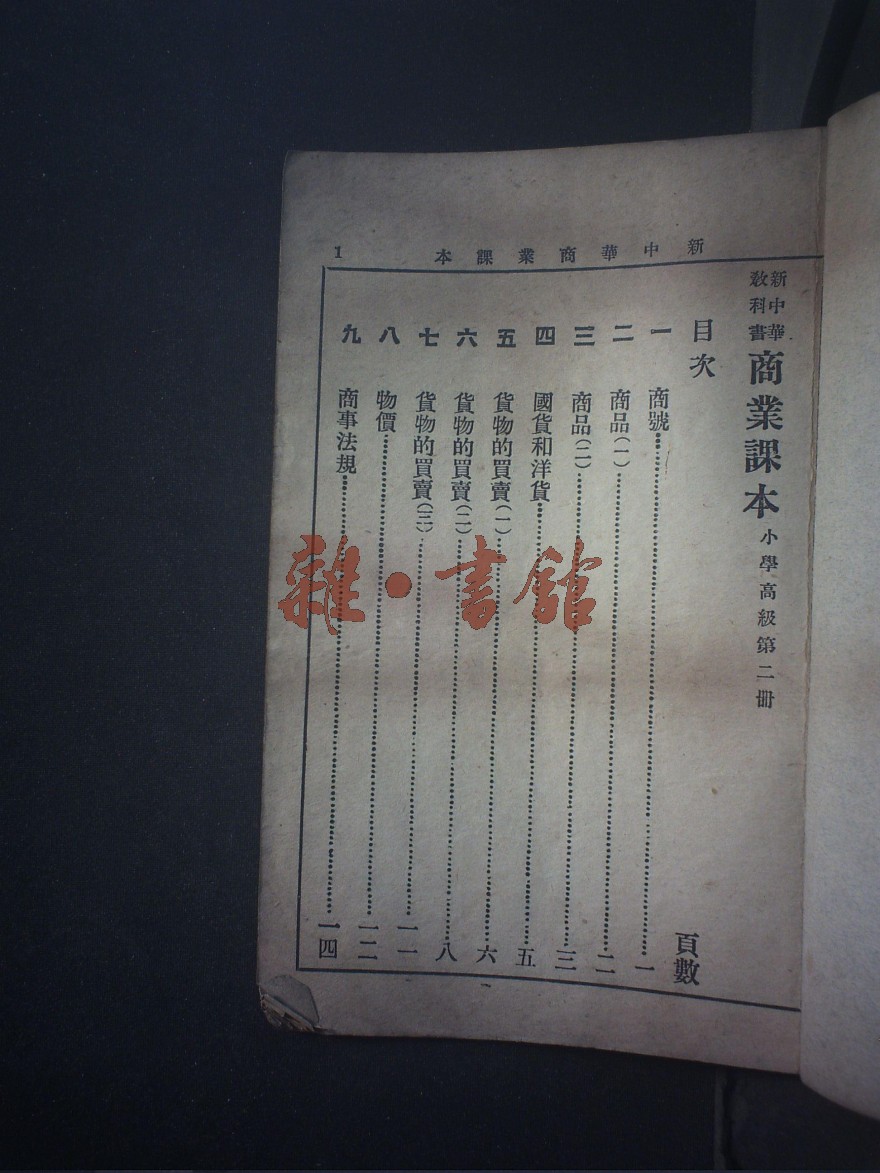 新中華商業課本
1
新中華
教科書
商業課本 小學高級第二冊
目次
頁數
一 商號 一
二 商品(一) 二
三 商品(二) 三
四 國貨和洋貨 五
五 貨物的買賣(一) 六
六 貨物的買賣(二) 八
七 貨物的買賣(三) 一一
八 物價 一二
九 商事法規 一四
雜·書館